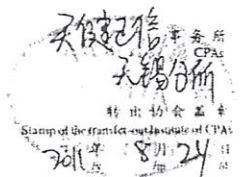 天健正信事务所
CPAs
无锡分所
转出协会盖章
Stamp of the transfer-out Institute of CPAs
2011年8月24日